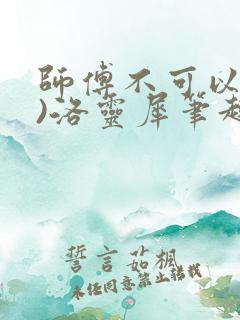 師傅不可以
)洛靈犀筆趣
誓言茹楓
未經同意禁止轉載